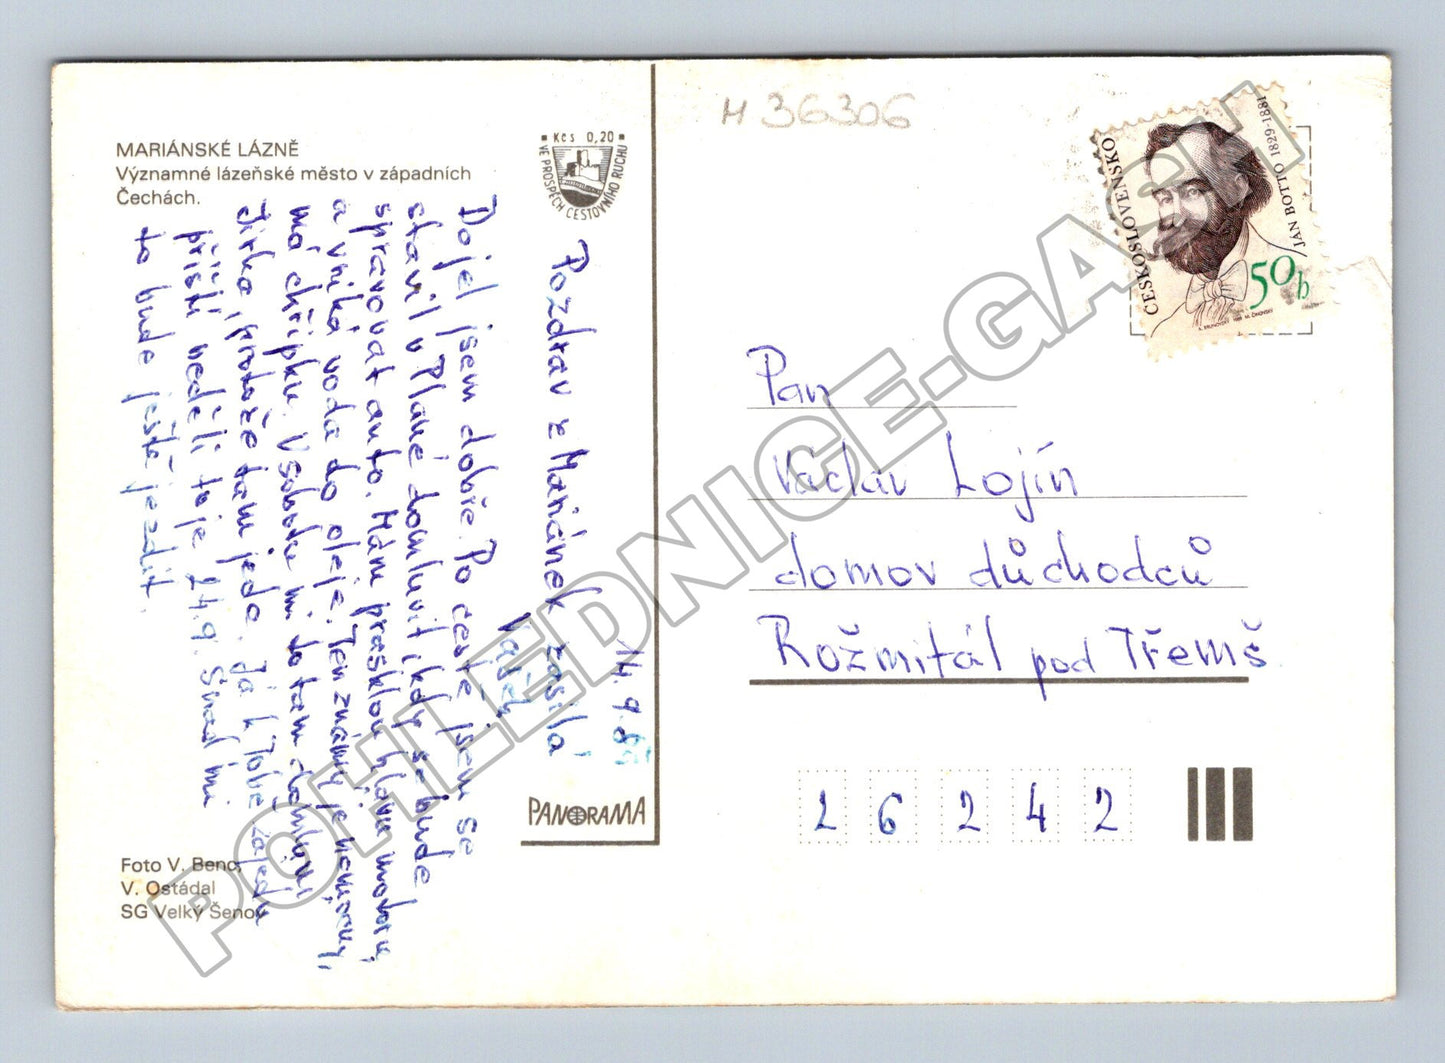 MARIÁNSKÉ LÁZNĚ
Významné lázeňské město v západních
Čechách.
Kčs 0,20
VE PROSPĚCH CESTOVNÍHO RUCHU
14. 9. 89
Pozdrav z Mariánek zasílá
Dojel jsem dobře. Po cestě jsem se
stavil v Plané domluvit kdy se bude
spravovat auto. Mám prasklou hlavu motoru,
a vniká voda do oleje. Ten známý je nemocný,
má chřipku. V sobotu mi to tam domluví
Jirka, protože tam jede. Já k Tobě zajedu
příští neděli to je 24. 9. Snad mi
to bude ještě jezdit.
PANORAMA
Foto V. Benc,
V. Ostádal
SG Velký Šenov
M 36306
ČESKOSLOVENSKO
JAN BOTTO 1829-1881
50h
Pan
Václav Lojín
domov důchodců
Rožmitál pod Třemš
26242
POHLEDNICE-GASH